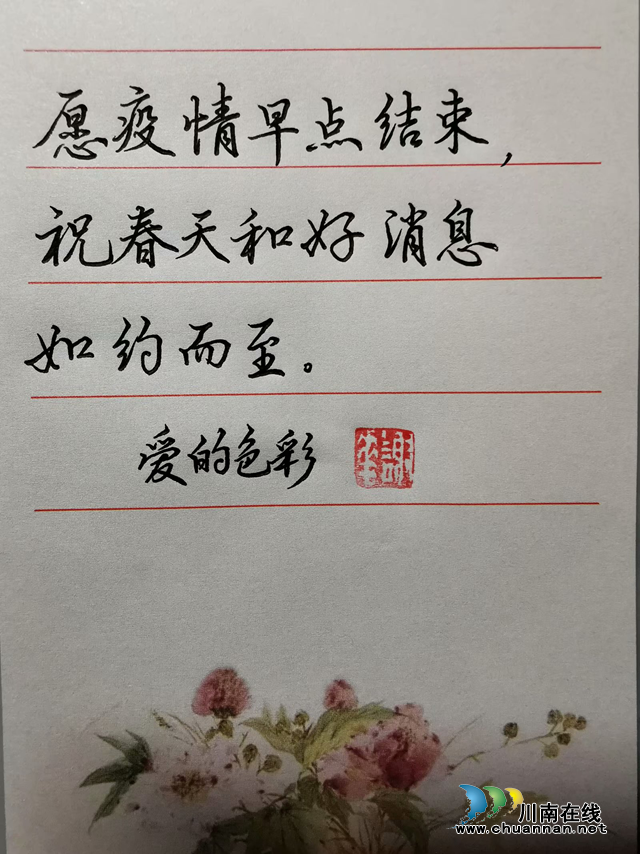 愿疫情早点结束,
祝春天和好消息
如约而至。
爱的色彩
川南在线
www.chuannan.net